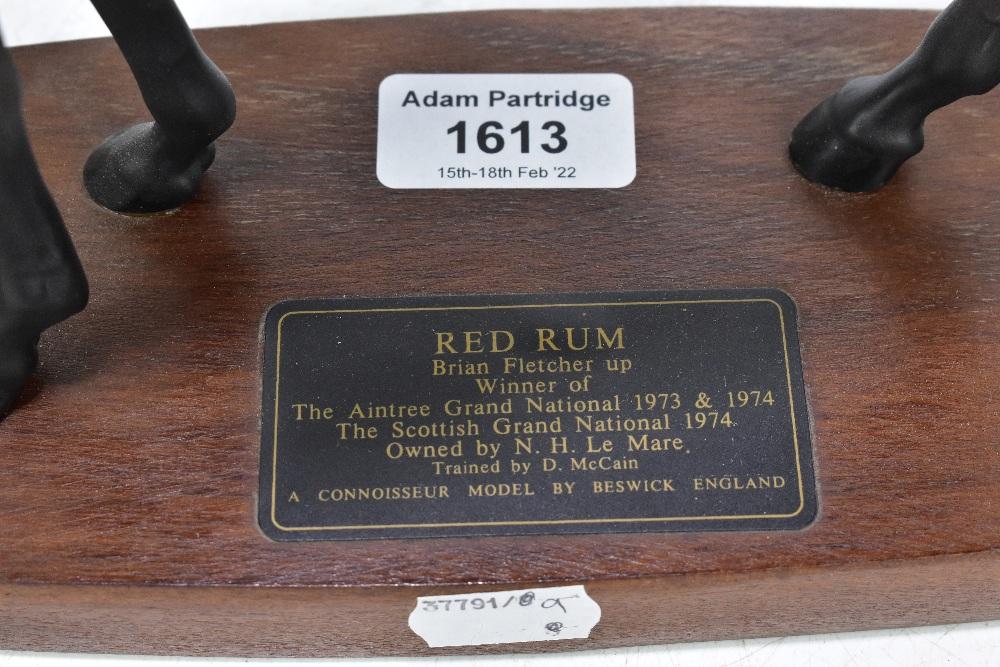 Adam Partridge
1613
15th-18th Feb '22
RED RUM
Brian Fletcher up
Winner of
The Aintree Grand National 1973 & 1974
The Scottish Grand National 1974.
Owned by N. H. Le Mare.
Trained by D. McCain
A CONNOISSEUR MODEL BY BESWICK ENGLAND